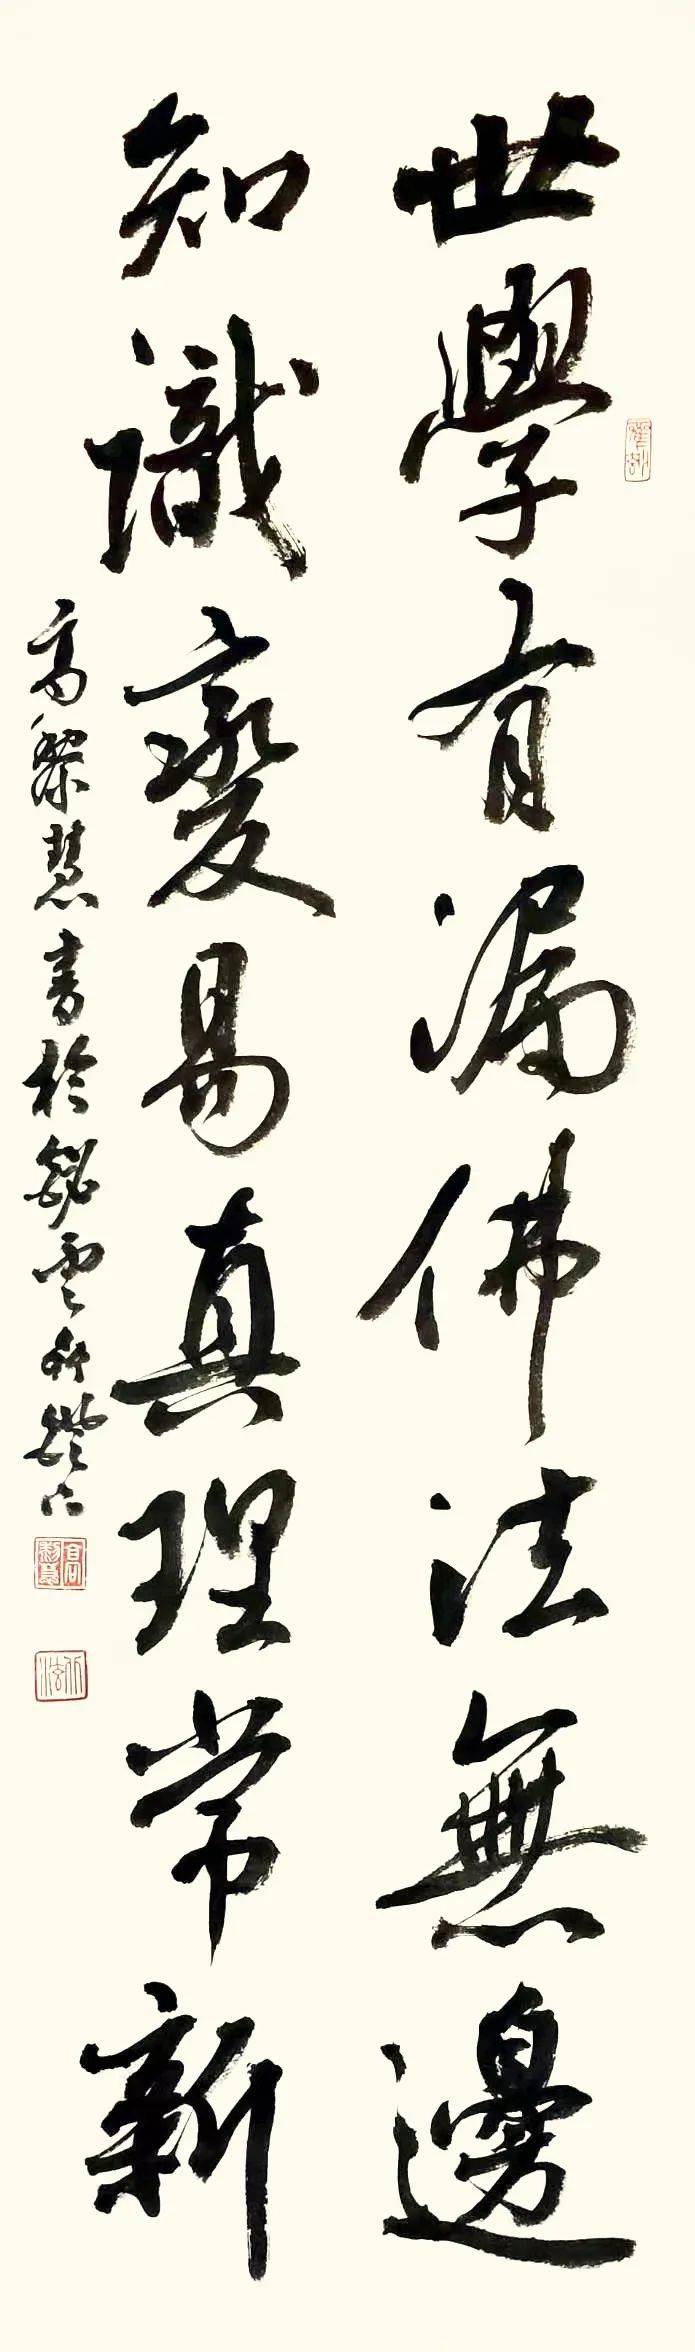 世學有漏佛法無邊
知識變易真理常新
高黎慧書於妙雲軒燈下